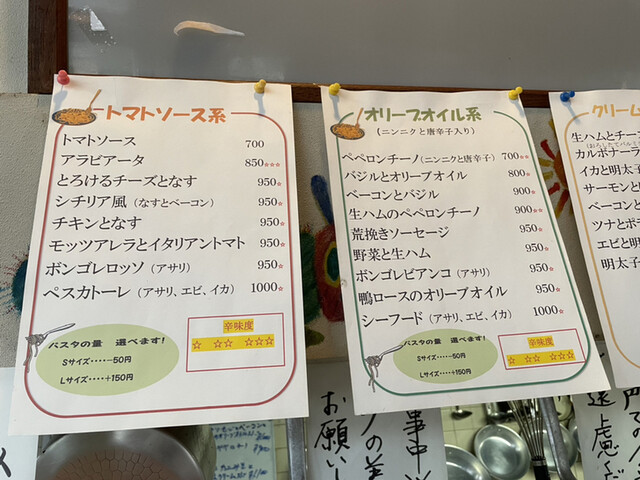 トマトソース系
トマトソース 700
アラビアータ 850☆☆☆
とろけるチーズとなす 950☆
シチリア風（なすとベーコン） 950☆
チキンとなす 950☆
モッツアレラとイタリアントマト 950☆
ボンゴレロッソ（アサリ） 950☆
ペスカトーレ（アサリ、エビ、イカ） 1000☆
パスタの量 選べます！
Sサイズ・・・・-50円
Lサイズ・・・・+150円
辛味度
☆ ☆☆ ☆☆☆
オリーブオイル系
（ニンニクと唐辛子入り）
ペペロンチーノ（ニンニクと唐辛子） 700☆☆
バジルとオリーブオイル 800☆
ベーコンとバジル 900☆
生ハムのペペロンチーノ 900☆☆
荒挽きソーセージ 950☆
野菜と生ハム 950☆
ボンゴレビアンコ（アサリ） 950☆
鴨ロースのオリーブオイル 950☆
シーフード（アサリ、エビ、イカ） 1000☆
パスタの量 選べます！
Sサイズ・・・・-50円
Lサイズ・・・・+150円
辛味度
☆ ☆☆ ☆☆☆
クリーム
生ハムとチー
カルボナーラ
イカと明太
サーモンと
ベーコンと
ツナとポ
エビと明
明太子
お願い
事中
遠慮